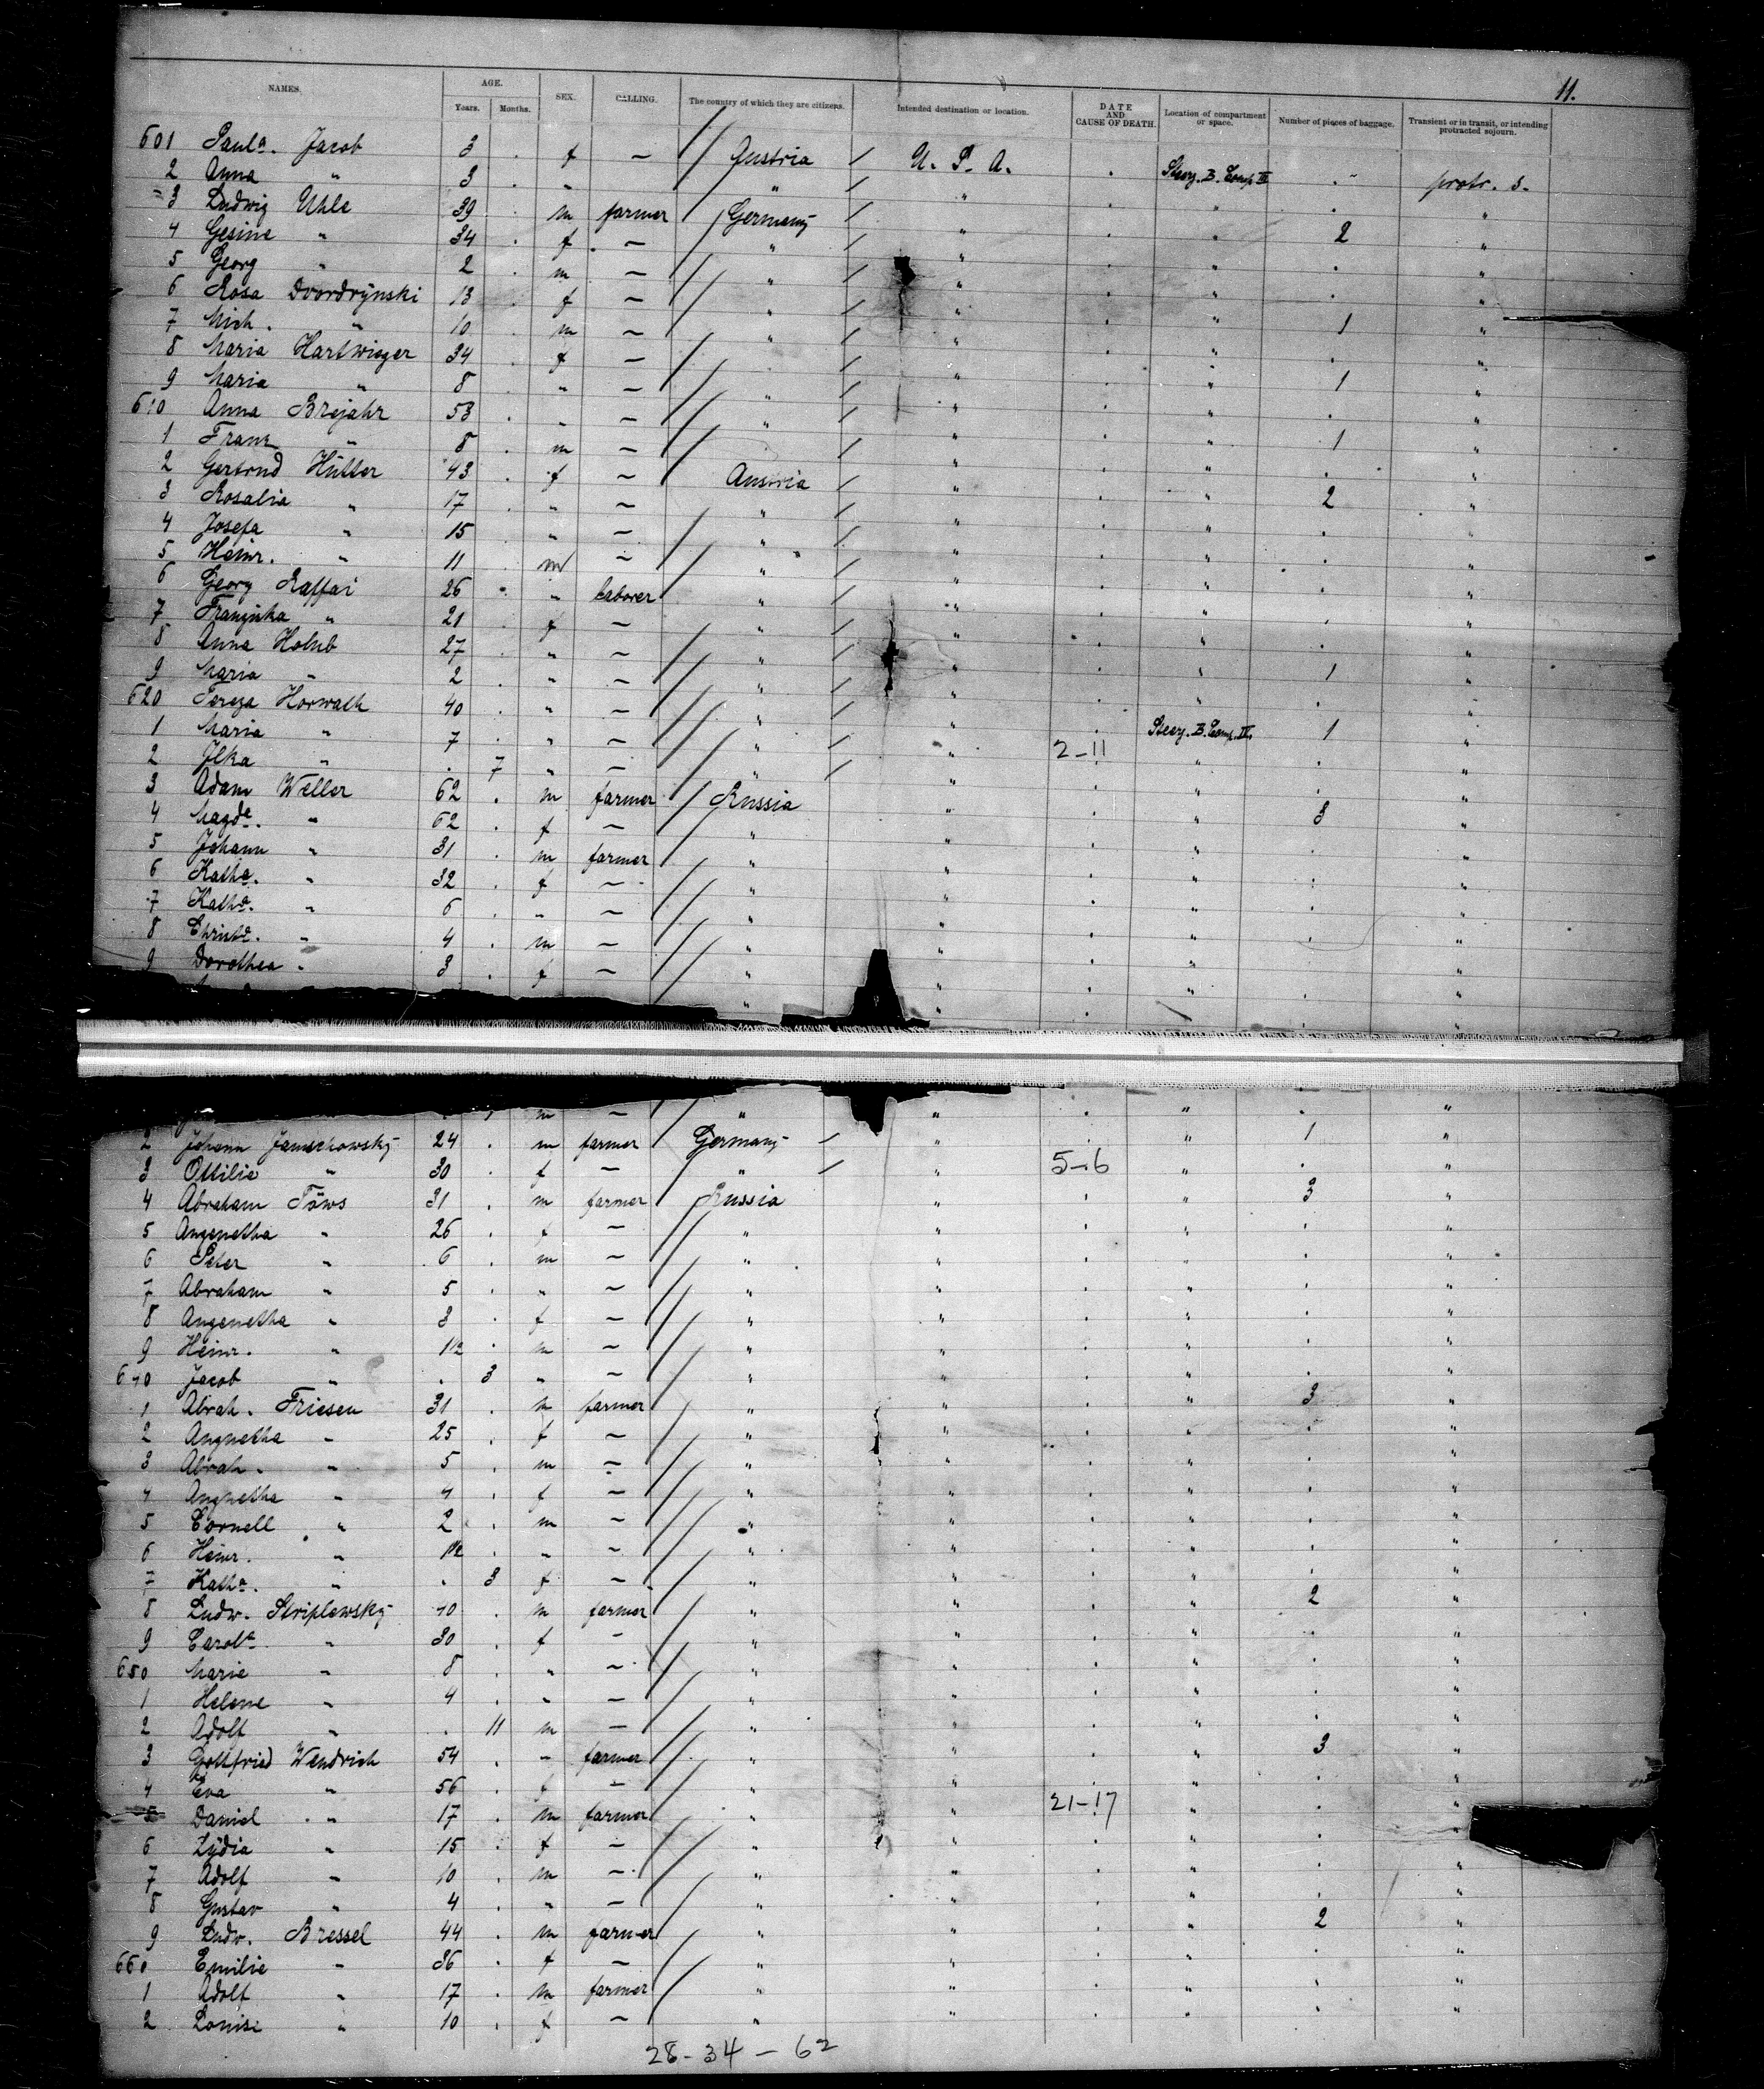 11.
NAMES. AGE. Years. Months. SEX. CALLING. The country of which they are citizens. Intended destination or location. DATE AND CAUSE OF DEATH. Location of compartment or space. Number of pieces of baggage. Transient or in transit, or intending protracted sojourn.
601 Paula. Jacob 3 . f — Austria U. S. A. . Steer. B. Comp. III . protr. s.
2 Anna " 3 . " " " . " . "
3 Ludwig Uhle 39 . m farmer Germany " . " 2 "
4 Gesine " 34 . f — " " . " . "
5 Georg " 2 . m — " " . " . "
6 Rosa Dvordrÿnski 13 . f — " " . " 1 "
7 Mich. " 10 . m — " " . " . "
8 Maria Hartwieger 34 . f — " " . " 1 "
9 Maria " 8 . " — " " . " . "
610 Anna Brejahr 53 . " — " " . " 1 "
1 Franz " 8 . m — " . " . "
2 Gertrud Hütter 43 . f — Austria " . " 2 "
3 Rosalia " 17 . " — " " . " . "
4 Josefa " 15 . " — " " . " . "
5 Heinr. " 11 . m — " " . " . "
6 Georg Raffai 26 . " laborer " " . " . "
7 Franziska " 21 . f — " " . " . "
8 Anna Holub 27 . " — " " . " 1 "
9 Maria " 2 . " — " " . " . "
620 Tereza Horwath 40 . " — " " . Steer. B. Comp. IV. 1 "
1 Maria " 7 . " — " " 2-11 " . "
2 Ilka " . 7 " — " " . " . "
3 Adam Weller 62 . m farmer Russia " . " 3 "
4 Magde. " 62 . f — " " . " . "
5 Johann " 31 . m farmer " " . " . "
6 Katha. " 32 . f — " " . " . "
7 Katha. " 6 . " — " " . " . "
8 Christe. " 4 . m — " " . " . "
9 Dorothea " 3 . f — " " . " . "
m — " " . " . "
2 Johann Jameschowskÿ 24 . m farmer Germany " . " 1 "
3 Ottilie " 30 . f — " " 5-6 " . "
4 Abraham Töws 31 . m farmer Russia " . " 3 "
5 Angenetha " 26 . f — " " . " . "
6 Peter " 6 . m — " " . " . "
7 Abraham " 5 . " — " " . " . "
8 Angenetha " 3 . f — " " . " . "
9 Heinr. " 1½ . m — " " . " . "
640 Jacob " . 3 " — " " . " . "
1 Abrah. Friesen 31 . m farmer " " . " 3 "
2 Angnetha " 25 . f — " " . " . "
3 Abrah. " 5 . m — " " . " . "
4 Angnetha " 4 . f — " " . " . "
5 Cornell " 2 . m — " " . " . "
6 Heinr. " 1½ . " — " " . " . "
7 Katha. " . 3 f — " " . " . "
8 Ludw. Striplewskÿ 40 . m farmer " " . " 2 "
9 Carole. " 30 . f — " " . " . "
650 Marie " 8 . " — " " . " . "
1 Helene " 4 . " — " " . " . "
2 Adolf " . 11 m — " " . " . "
3 Gottfried Wendrich 54 . " farmer " " . " 3 "
4 Eva " 56 . f — " " . " . "
5 Daniel " 17 . m farmer " " 21-17 " . "
6 Lÿdia " 15 . f — " " . " . "
7 Adolf " 10 . m — " " . " . "
8 Gustav " 4 . " — " " . " . "
9 Ludw. Bressel 44 . m farmer " " . " 2 "
660 Emilie " 36 . f — " " . " . "
1 Adolf " 17 . m farmer " " . " . "
2 Louise " 10 . f — " " . " . "
28-34-62